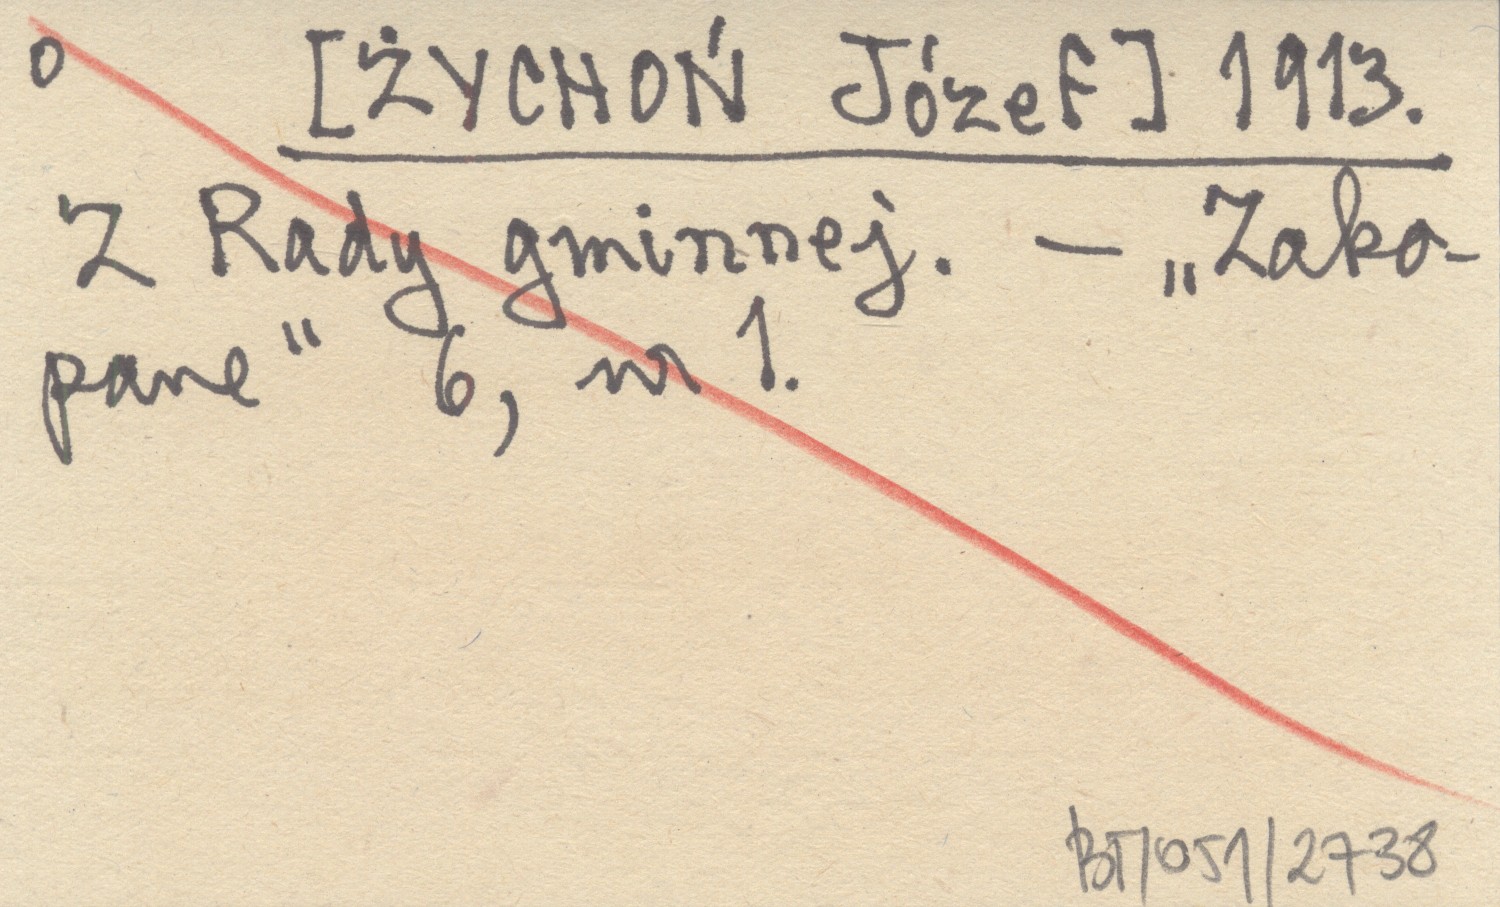 o [ŻYCHOŃ Józef] 1913.
Z Rady gminnej. — „Zako-
pane" 6, nr 1.
BT/051/2738